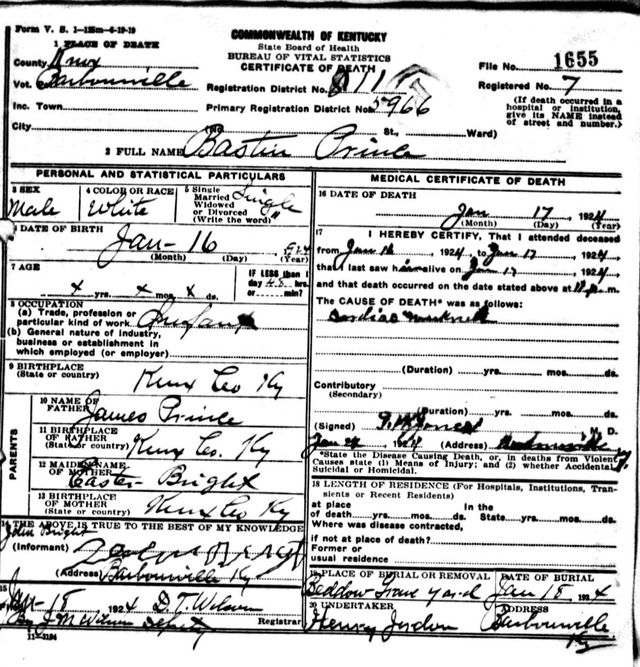 Form V. S. 1—125m—6-19-19
COMMONWEALTH OF KENTUCKY
State Board of Health
BUREAU OF VITAL STATISTICS
CERTIFICATE OF DEATH
1 PLACE OF DEATH
County Knox
Vot. Barbourville
Inc. Town
City
File No. 1655
Registered No. 7
(If death occurred in a hospital or institution, give its NAME instead of street and number.)
Registration District No.
Primary Registration District No. 5966
(No. St., Ward)
2 FULL NAME Bastin Prince
PERSONAL AND STATISTICAL PARTICULARS
3 SEX
Male
4 COLOR OR RACE
White
5 Single
Married
Widowed
or Divorced
(Write the word)
Single
6 DATE OF BIRTH
Jan - 16
(Month) (Day) (Year)
7 AGE
x yrs. x mos. x ds.
IF LESS than 1
day hrs.
or min.?
8 OCCUPATION
(a) Trade, profession or
particular kind of work Infant
(b) General nature of industry,
business or establishment in
which employed (or employer)
9 BIRTHPLACE
(State or country)
Knox Co Ky
PARENTS
10 NAME OF
FATHER
James Prince
11 BIRTHPLACE
OF FATHER
(State or country)
Knox Co. Ky
12 MAIDEN NAME
OF MOTHER
Easter Bright
13 BIRTHPLACE
OF MOTHER
(State or country)
Knox Co Ky
14 THE ABOVE IS TRUE TO THE BEST OF MY KNOWLEDGE
John Bright
(Informant)
(Address) Barbourville Ky
15
18 1924 D. T. Wilson
Registrar
By J M Wilson Deputy
11—3184
MEDICAL CERTIFICATE OF DEATH
16 DATE OF DEATH
Jan 17, 1924
(Month) (Day) (Year)
17 I HEREBY CERTIFY, That I attended deceased
from Jan 16, 1924, to Jan 17, 1924,
that I last saw him alive on Jan 17, 1924,
and that death occurred on the date stated above at m.
The CAUSE OF DEATH* was as follows:
Cardiac
(Duration) yrs. mos. ds.
Contributory
(Secondary)
(Duration) yrs. mos. ds.
(Signed) M. D.
Jan (Address) Barbourville Ky
*State the Disease Causing Death, or, in deaths from Violent
Causes state (1) Means of Injury; and (2) whether Accidental,
Suicidal or Homicidal.
18 LENGTH OF RESIDENCE (For Hospitals, Institutions, Transients or Recent Residents)
at place In the
of death yrs. mos. ds. State yrs. mos. ds.
Where was disease contracted,
if not at place of death?
Former or
usual residence
19 PLACE OF BURIAL OR REMOVAL
Beddow Grave yard
DATE OF BURIAL
Jan 18 1924
20 UNDERTAKER
Henry Jordon
ADDRESS
Barbourville
Ky